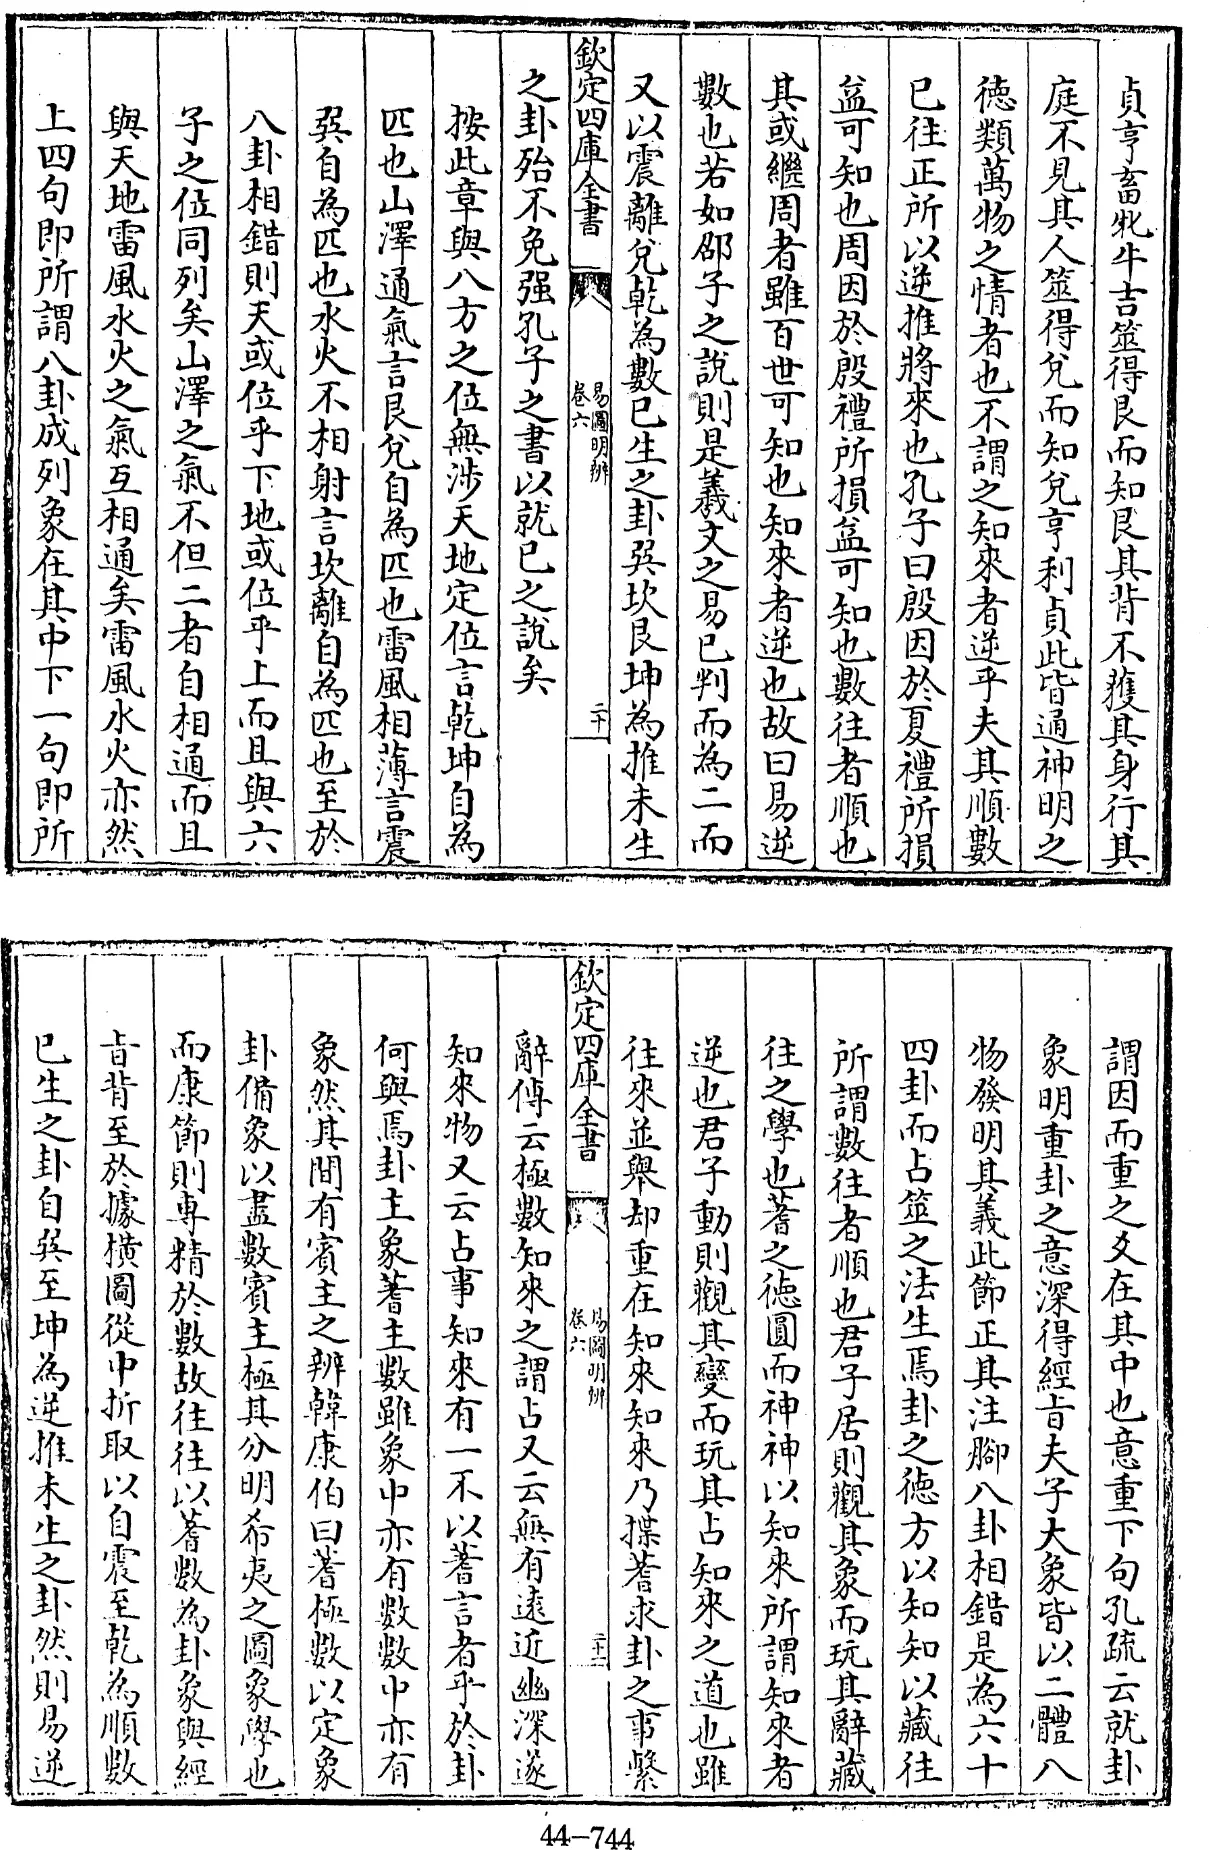 貞亨畜牝牛吉筮得艮而知艮其背不獲其身行其
庭不見其人筮得兌而知兌亨利貞此皆通神明之
徳類萬物之情者也不謂之知來者逆乎夫其順數
已往正所以逆推將來也孔子曰殷因於夏禮所損
益可知也周因於殷禮所損益可知也數往者順也
其或繼周者雖百世可知也知來者逆也故曰易逆
數也若如邵子之說則是羲文之易已判而為二而
又以震離兌乾為數已生之卦巽坎艮坤為推未生
欽定四庫全書
易圖明辨
卷六
二十
之卦殆不免强孔子之書以就已之說矣
按此章與八方之位無涉天地定位言乾坤自為
匹也山澤通氣言艮兌自為匹也雷風相薄言震
巽自為匹也水火不相射言坎離自為匹也至於
八卦相錯則天或位乎下地或位乎上而且與六
子之位同列矣山澤之氣不但二者自相通而且
與天地雷風水火之氣互相通矣雷風水火亦然
上四句即所謂八卦成列象在其中下一句即所
謂因而重之爻在其中也意重下句孔疏云就卦
象明重卦之意深得經旨夫子大象皆以二體八
物發明其義此節正其注腳八卦相錯是為六十
四卦而占筮之法生焉卦之徳方以知知以藏往
所謂數往者順也君子居則觀其象而玩其辭藏
往之學也蓍之徳圓而神神以知來所謂知來者
逆也君子動則觀其變而玩其占知來之道也雖
往來並舉却重在知來知來乃揲蓍求卦之事繫
欽定四庫全書
易圖明辨
卷六
二十一
辭傳云極數知來之謂占又云無有遠近幽深遂
知來物又云占事知來有一不以蓍言者乎於卦
何與焉卦主象蓍主數雖象中亦有數數中亦有
象然其間有賓主之辨韓康伯曰蓍極數以定象
卦備象以盡數賓主極其分明希夷之圖象學也
而康節則専精於數故往往以蓍數為卦象與經
旨背至於據橫圖從中折取以自震至乾為順數
已生之卦自巽至坤為逆推未生之卦然則易逆
44-744